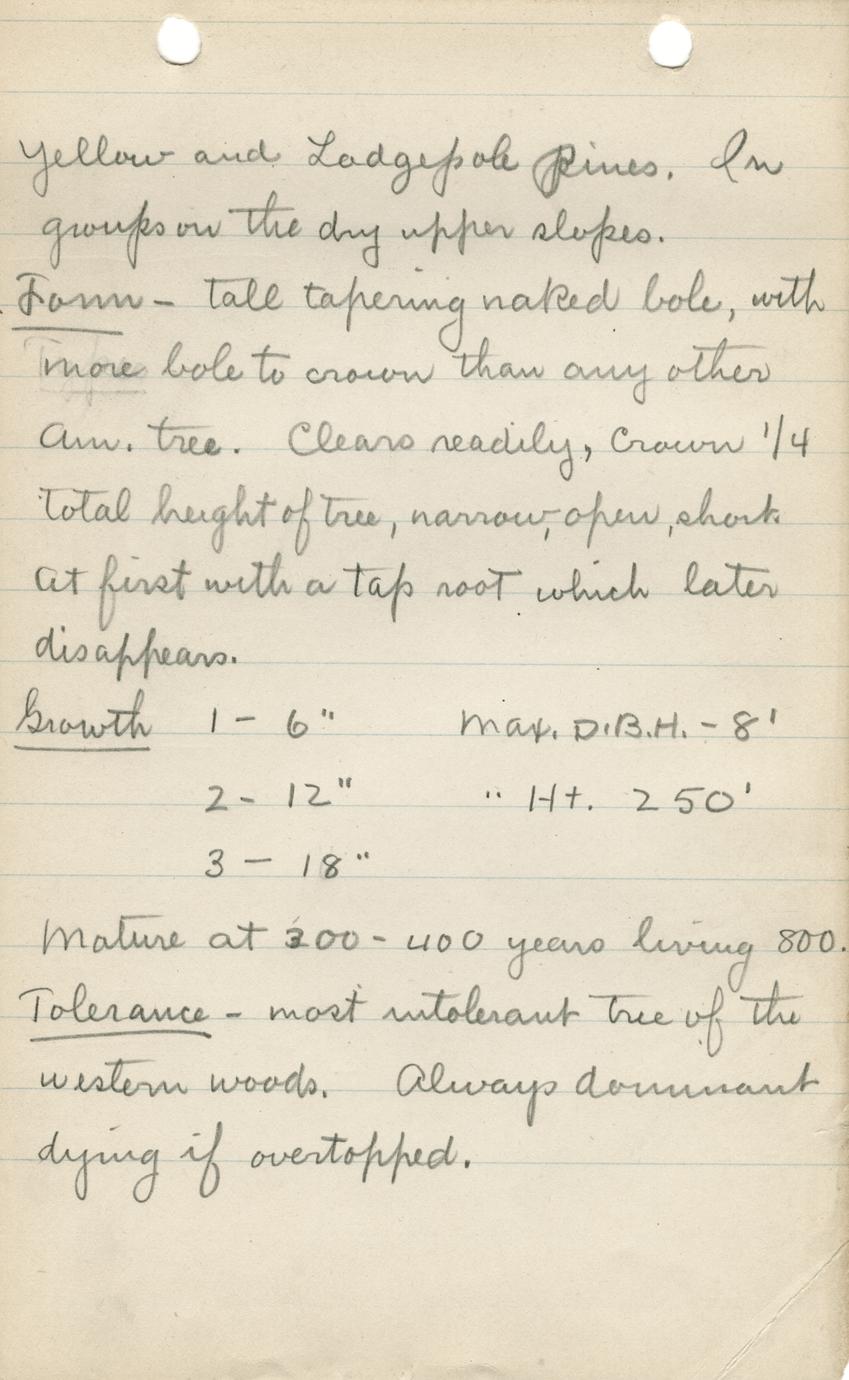 Yellow and Lodgepole Pines. In
groups on the dry upper slopes.
Form - tall tapering naked bole, with
more bole to crown than any other
Am. tree. Clears readily, Crown 1/4
total height of tree, narrow, open, short
At first with a tap root which later
disappears.
Growth 1 - 6" Max. D.B.H. - 8'
2 - 12" " Ht. 250'
3 - 18"
Mature at 300 - 400 years living 800.
Tolerance - most intolerant tree of the
western woods. Always dominant
dying if overtopped.